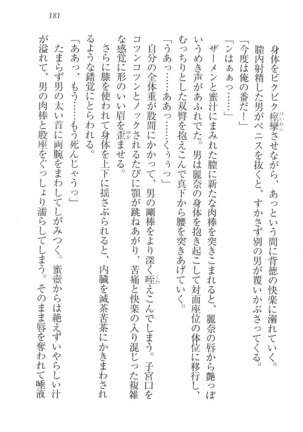 181
身体をビクビク痙攣させながら、あっという間に背徳の快楽に溺れていく。
膣内射精した男がペニスを抜くと、すかさず別の男が覆いかぶさってくる。
「今度は俺の番だ！」
「ンはぁぁっ……」
ザーメンと蜜汁にまみれた膣に新たな肉棒を突きこまれると、麗奈の唇から艶っぽ
いうめき声があふれでた。男は麗奈の身体を抱き起こして対面座位の体位に移行し、
むっちりとした双臀を抱えこんで真下から腰を突きあげていく。
「うあっ……ああっ……くうぅっ」
自分の全体重が股間にかかって、男の剛棒をより深く咥えこんでしまう。子宮口を
コツンコツンとノックされるたびに顎が跳ねあがり、苦痛と快楽の入り混じった複雑
な感覚に形のいい眉を歪ませる。
さらに膝を使われて身体を上下に揺さぶられると、内臓を滅茶苦茶にかきまわされ
るような錯覚にとらわれる。
「ああっ、もう……もう死んしゃうっ」
たまらず男の太い首に両腕をまわしてしがみつく。蜜壺からは絶えずいやらしい汁
が溢れて、男の肉棒と股座をぐっしょり濡らしてしまう。そのまま唇を奪われて唾液